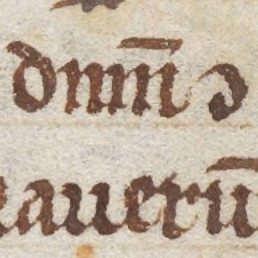 dnm̄ ꝯ
auerū